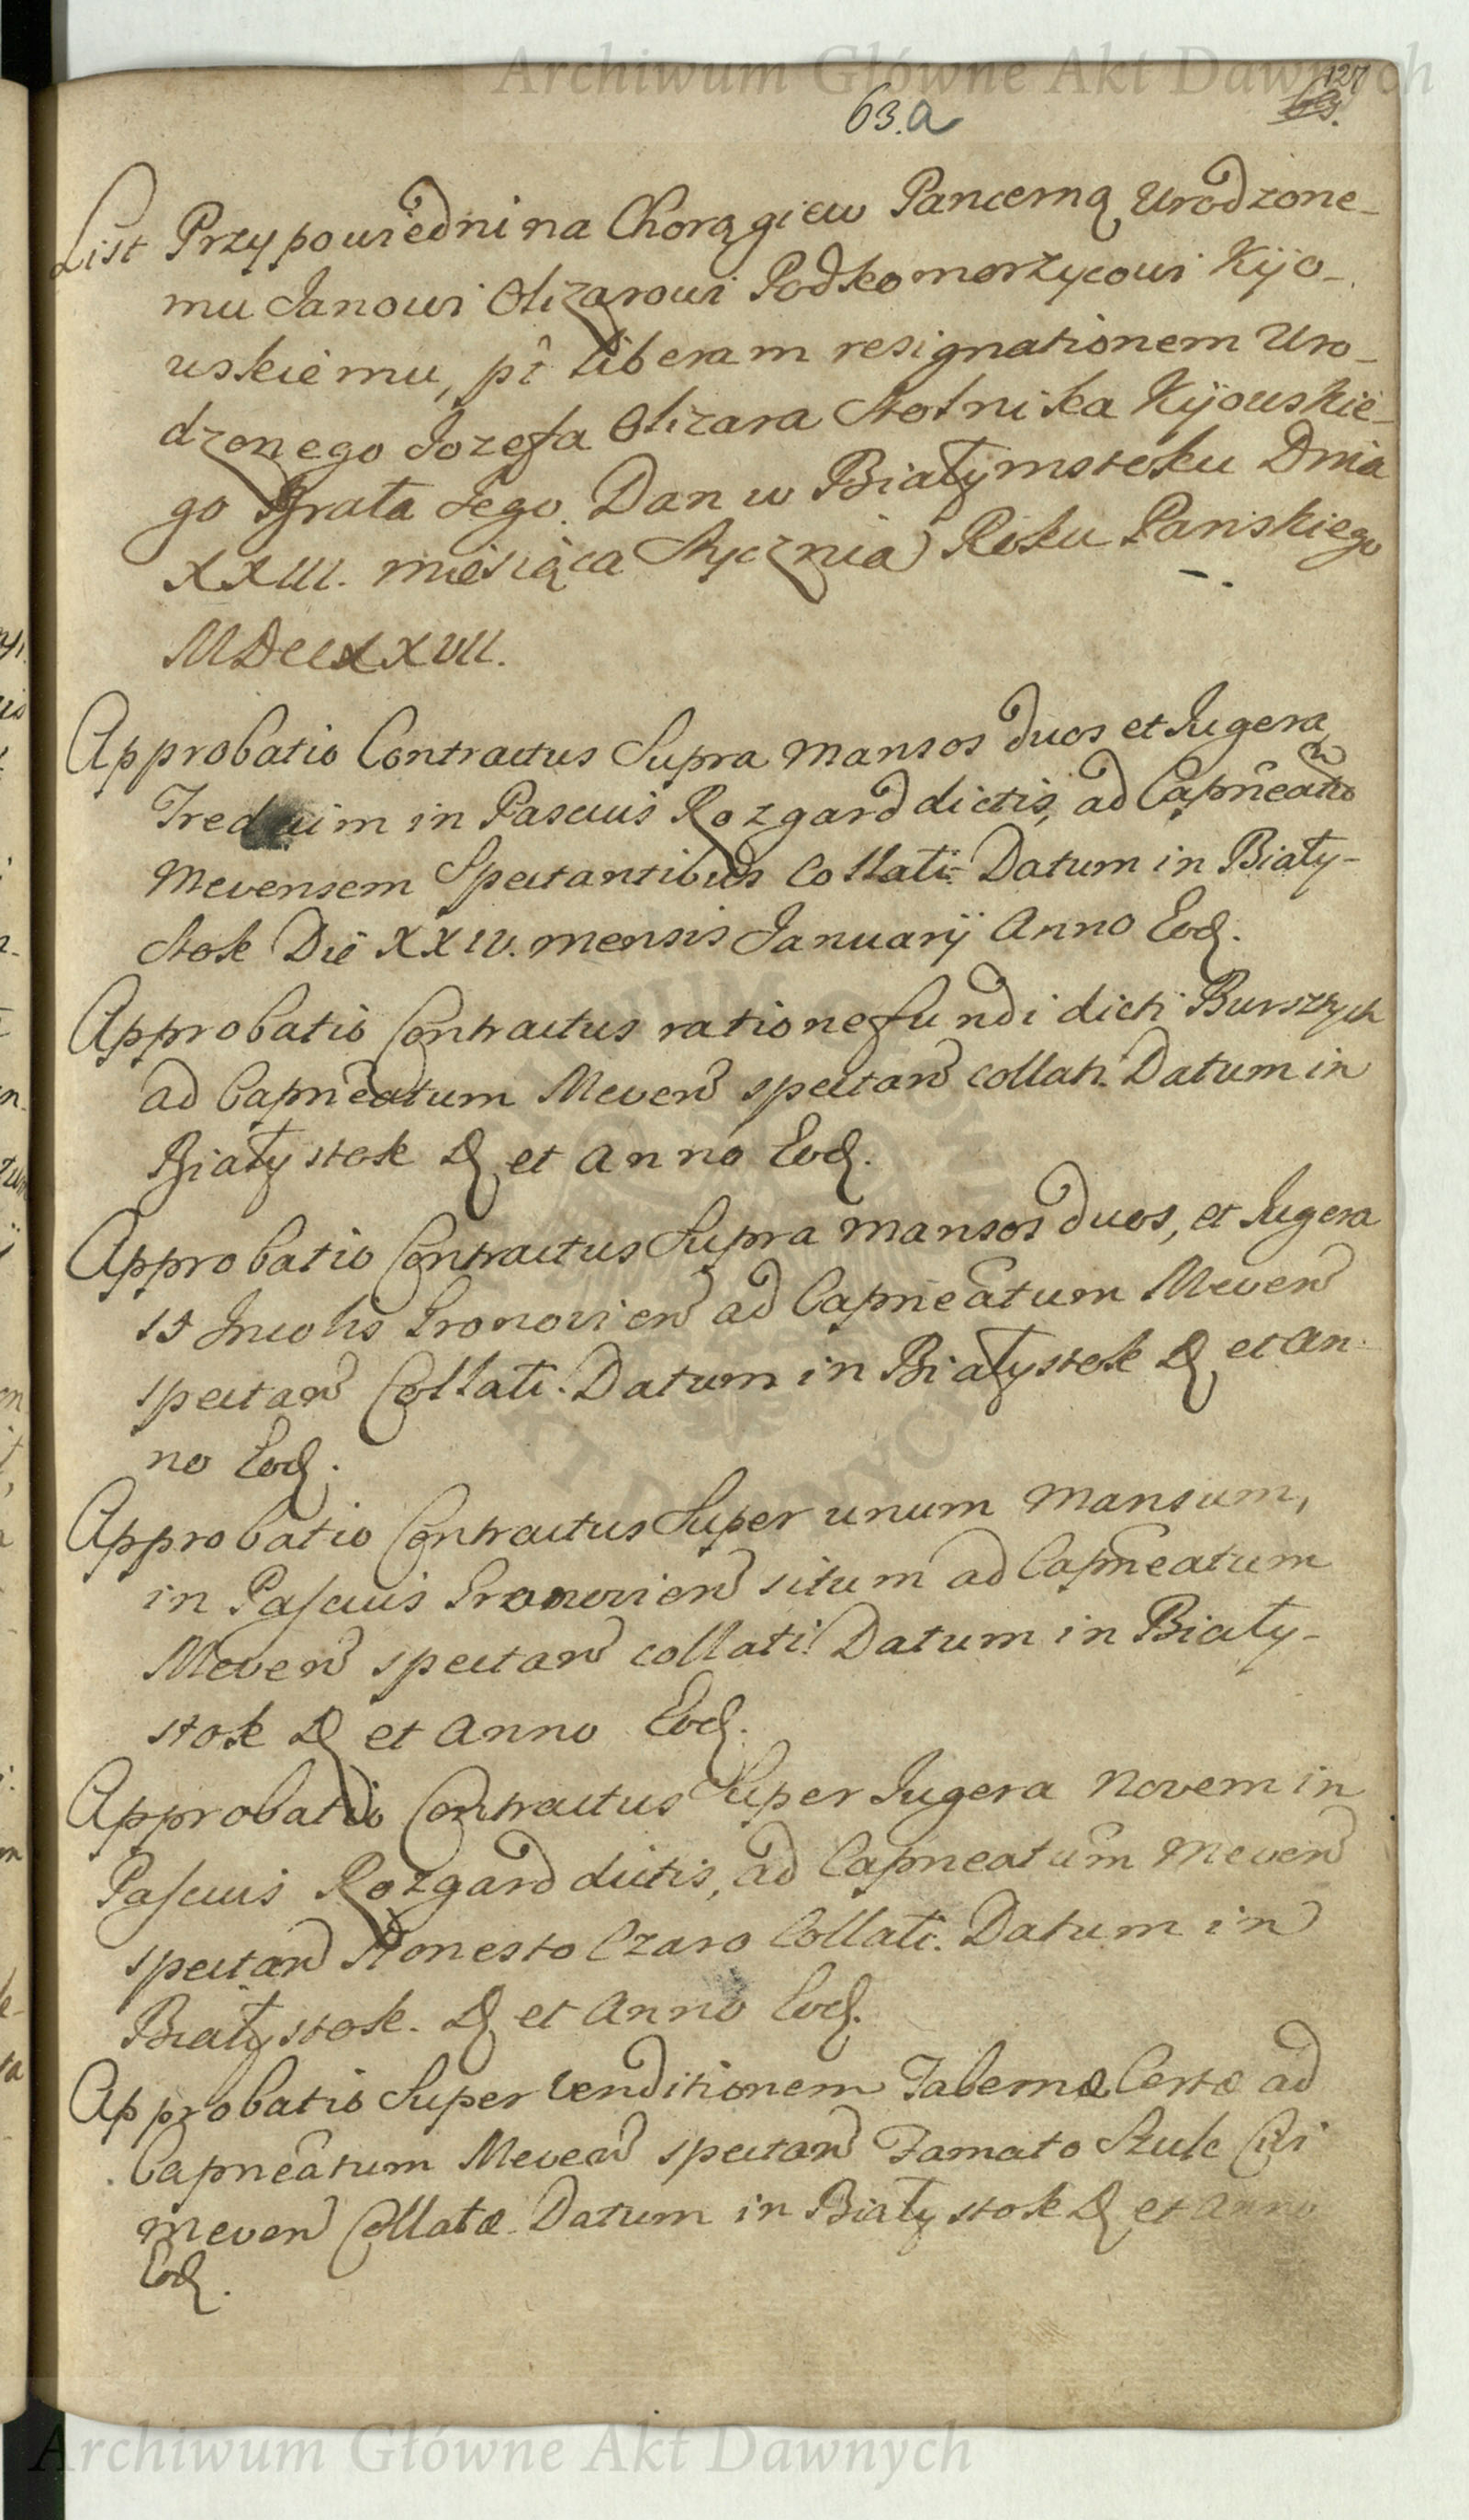 Archiwum Główne Akt Dawnych
127
63.
63.a
List Przypowiedni na Chorągiew Pancerną Urodzone-
mu Janowi Olizarowi Podkomorzycowi Kijo-
wskiemu, pr liberam resignationem Uro-
dzonego Jozefa Olizara Stolnika Kijowskie-
go Brata Jego. Dan w Białymstoku Dnia
XXIII. miesiąca Stycznia Roku Pańskiego
MDCCXXVII.
Approbatio Contractus Supra mansos duos et Jugera
in Pascuis Rozgard dictis, ad Capneatum
Mevensem Spectantibus Collati Datum in Biały-
stok Die XXIV. mensis Januarij Anno Eod.
Approbatio Contractus ratione fundi dicti Bursztych
ad Capneatum Meven spectan collati. Datum in
Białystok D. et Anno Eod.
Approbatio Contractus Supra mansos duos, et Jugera
15 Incolis Gronovien ad Capneatum Meven
spectan Collati. Datum in Białystok D. et An-
no Eod.
Approbatio Contractus Super unum mansum,
in Pascuis Gronovien situm ad Capneatum
Meven spectan collati. Datum in Biały-
stok D. et Anno Eod.
Approbatio Contractus Super Jugera novem in
Pascuis Rozgard dictis, ad Capneatum Meven
spectan Honesto Czaro Collati. Datum in
Białystok. D. et Anno Eod.
Approbatio Super venditionem Tabernæ Certæ ad
Capneatum Meven spectan Famato Szulc Civi
Meven Collatæ. Datum in Białystok D. et Anno
Eod.
Archiwum Główne Akt Dawnych